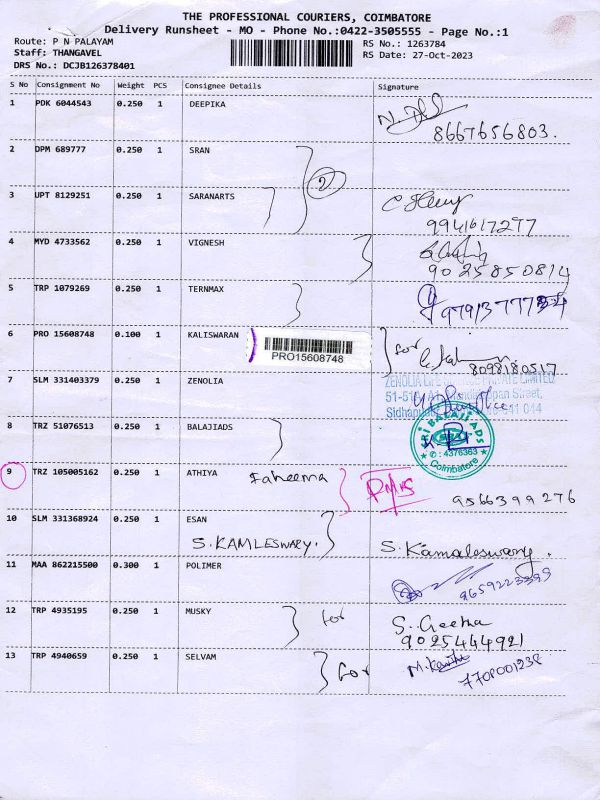 THE PROFESSIONAL COURIERS, COIMBATORE
Delivery Runsheet - MO - Phone No.:0422-3505555 - Page No.:1
Route: P N PALAYAM
Staff: THANGAVEL
DRS No.: DCJB126378401
RS No.: 1263784
RS Date: 27-Oct-2023
S No Consignment No Weight PCS Consignee Details Signature
1 PDK 6044543 0.250 1 DEEPIKA
8667656803.
2 DPM 689777 0.250 1 SRAN
2
3 UPT 8129251 0.250 1 SARANARTS
9941617277
4 MYD 4733562 0.250 1 VIGNESH
9025850814
5 TRP 1079269 0.250 1 TERNMAX
6 PRO 15608748 0.100 1 KALISWARAN
PRO15608748
for
8098180517
7 SLM 331403379 0.250 1 ZENOLIA
ZENOLIA LIFE PRIVATE LIMITED
Street,
641 044
8 TRZ 51076513 0.250 1 BALAJIADS
SRI BALAJI ADS
✆ : 4376363
Coimbatore
9 TRZ 105005162 0.250 1 ATHIYA Faheema
9566399276
10 SLM 331368924 0.250 1 ESAN
S. KAMLESWARY. S. Kamaleswary.
11 MAA 862215500 0.300 1 POLIMER
9659223393
12 TRP 4935195 0.250 1 MUSKY for S. Geetha
9025444921
13 TRP 4940659 0.250 1 SELVAM for